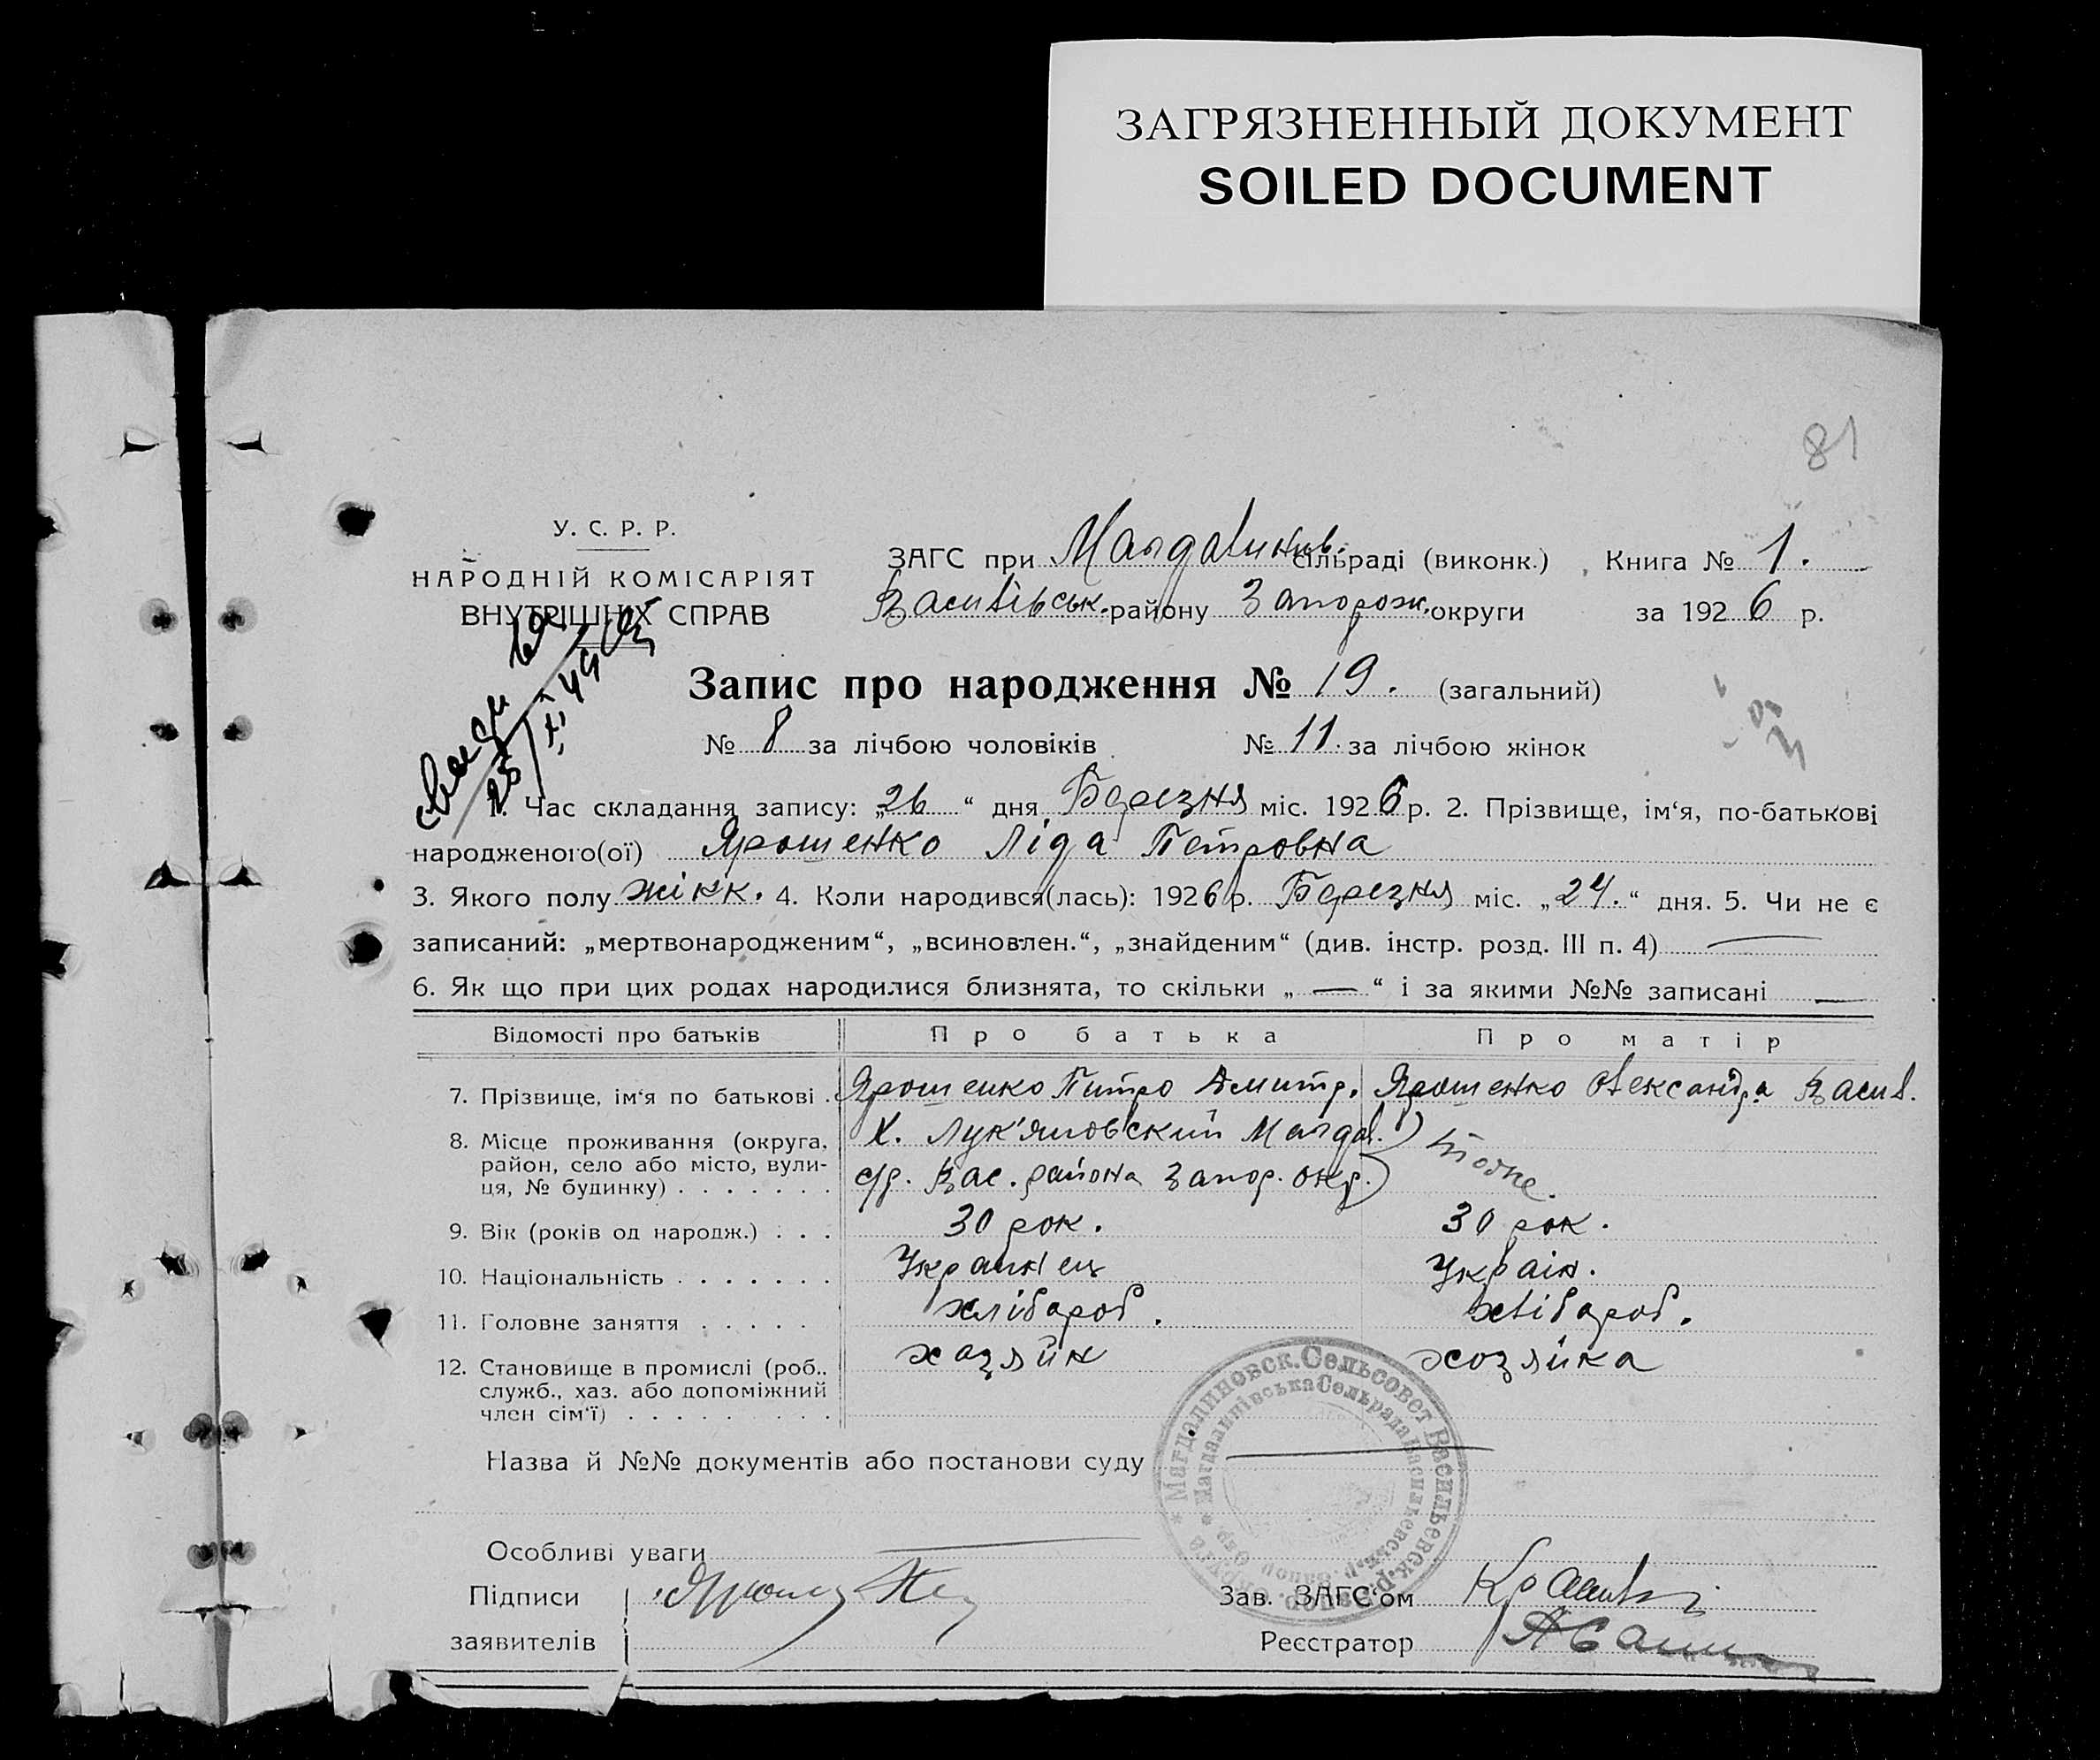 ЗАГРЯЗНЕННЫЙ ДОКУМЕНТ
SOILED DOCUMENT
81
У. С. Р. Р.
НАРОДНІЙ КОМІСАРІЯТ
ВНУТРІШНІХ СПРАВ
ЗАГС при Магдалинів. сільраді (виконк.) Книга № 1.
Василівськ. району Запорож. округи за 1926 р.
Запис про народження № 19. (загальний)
№ 8 за лічбою чоловіків № 11. за лічбою жінок
1. Час складання запису: „26“ дня Березня міс. 1926 р. 2. Прізвище, ім‘я, по-батькові
народженого(ої) Ярошенко Ліда Петровна
3. Якого полу жінк. 4. Коли народився(лась): 1926 р. Березня міс. „24.“ дня. 5. Чи не є
записаний: „мертвонародженим“, „всиновлен.“, „знайденим“ (див. інстр. розд. III п. 4) —
6. Як що при цих родах народилися близнята, то скільки „ — “ і за якими №№ записані —
Відомості про батьків Про батька Про матір
7. Прізвище, ім‘я по батькові . Ярошенко Питро Дмитр. Ярошенко Олександра Васил.
8. Місце проживання (округа, район, село або місто, вулиця, № будинку) . . . . . . .
Х. Лук'яновский Магдал.
с/р. Вас. района Запор. окр.
тоже.
9. Вік (років од народж.) . . . 30 рок. 30 рок.
10. Національність . . . . . . . Украинец Україн.
11. Головне заняття . . . . . хлібороб. хлібороб.
12. Становище в промислі (роб., служб., хаз. або допоміжний член сім‘ї) . . . . . . . . .
хазяйн хозяйка
Назва й №№ документів або постанови суду —
Магдалиновск. Сельсовет Васильевск. р. Запор. округа
Особливі уваги —
Підписи
заявителів
Зав. ЗАГС‘ом
Реєстратор